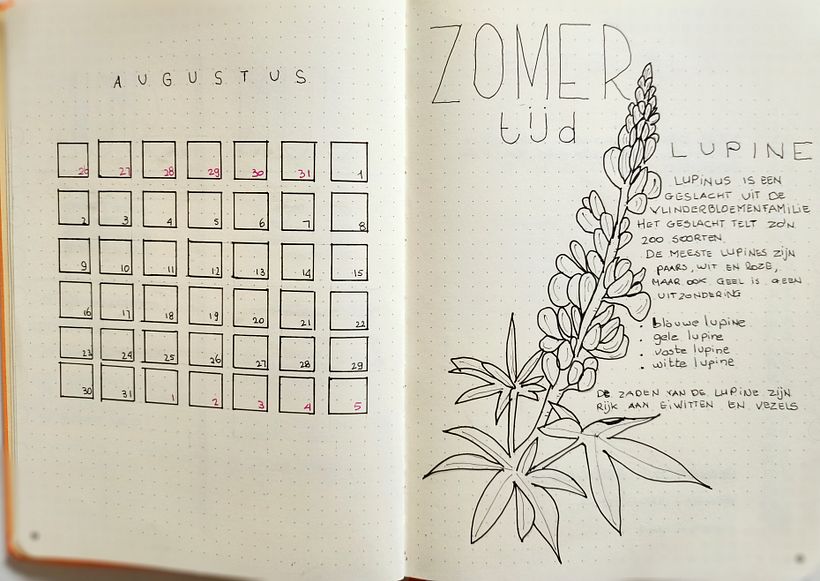 AUGUSTUS
26 27 28 29 30 31 1
2 3 4 5 6 7 8
9 10 11 12 13 14 15
16 17 18 19 20 21 22
23 24 25 26 27 28 29
30 31 1 2 3 4 5
ZOMER
tijd
LUPINE
LUPINUS IS EEN
GESLACHT UIT DE
VLINDERBLOEMENFAMILIE
HET GESLACHT TELT ZO'N
200 SOORTEN.
DE MEESTE LUPINES ZIJN
PAARS, WIT EN ROZE,
MAAR OOK GEEL IS GEEN
UITZONDERING
• blauwe lupine
• gele lupine
• vaste lupine
• witte lupine
DE ZADEN VAN DE LUPINE ZIJN
RijK AAN EIWITTEN EN VEZELS